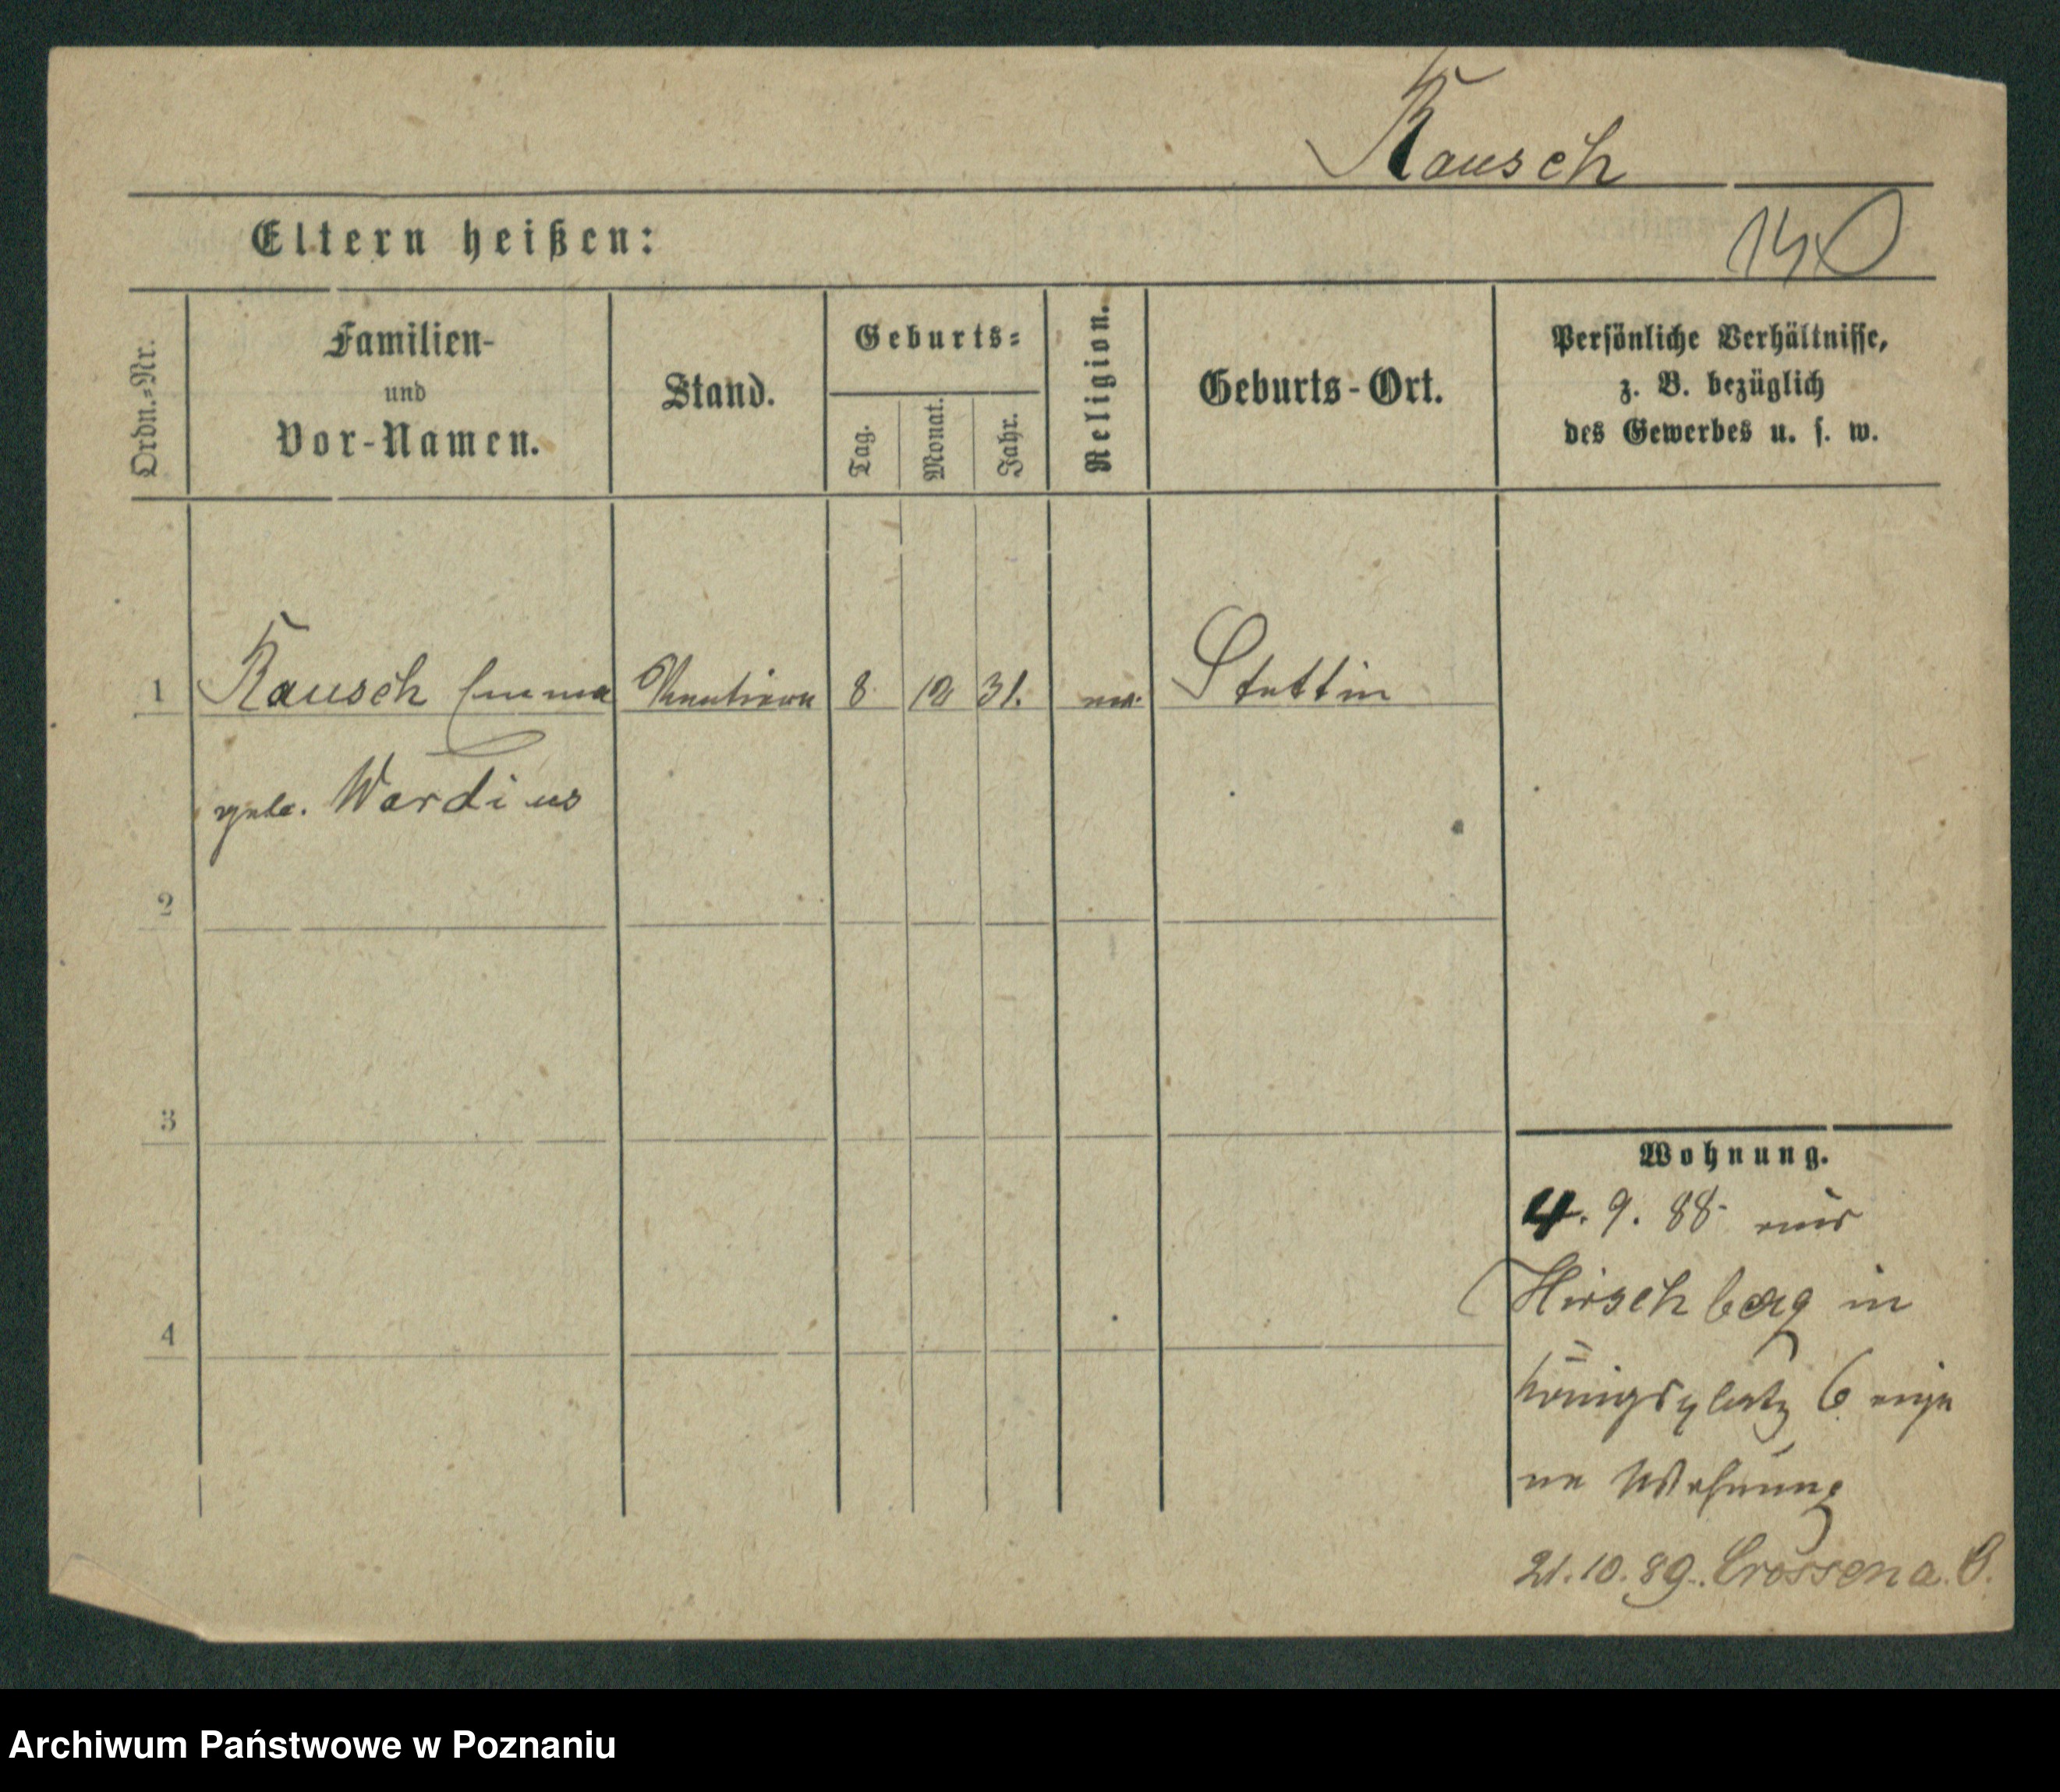 Rausch
140
Eltern heißen:
Ordn.-Nr.
Familien-
und
Vor-Namen.
Stand.
Geburts-
Tag.
Monat.
Jahr.
Religion.
Geburts-Ort.
Persönliche Verhältnisse,
z. B. bezüglich
des Gewerbes u. s. w.
1 Rausch Emma 8. 31. Stettin
geb. Wardius
2
3
4
Wohnung.
4. 9. 88 aus
Hirschberg in
Königsplatz 6 eige
ne Wohnung
21. 10. 89. Crossen a. O.
Archiwum Państwowe w Poznaniu